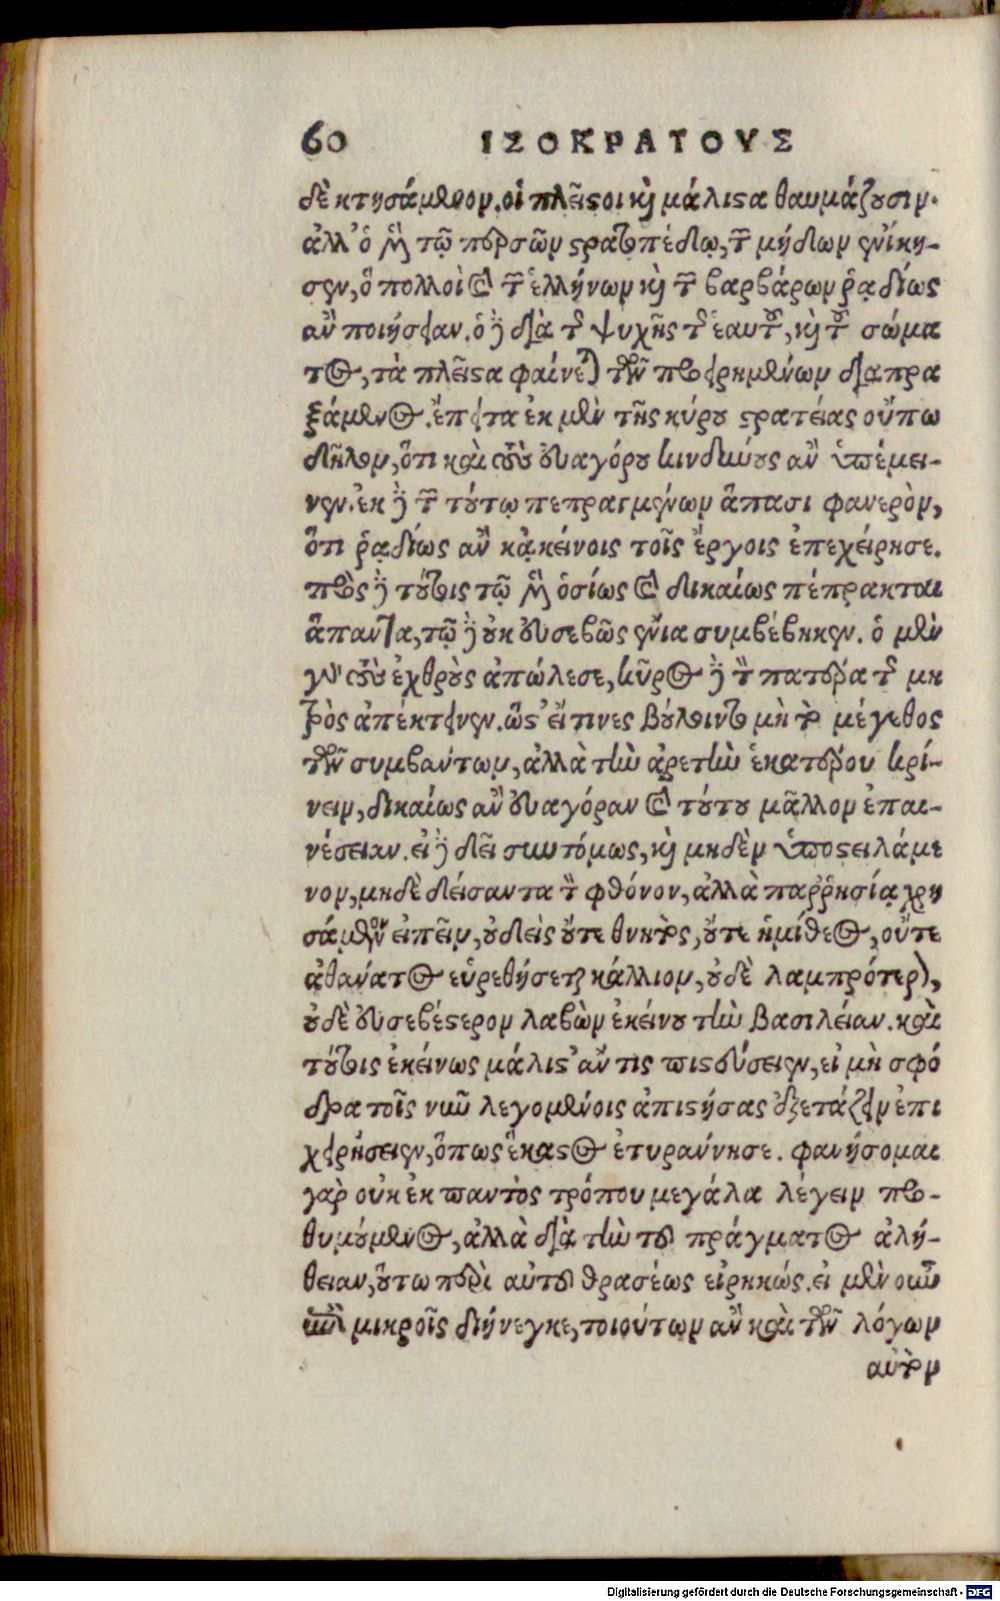 60 ΙΣΟΚΡΑΤΟΥΣ
δὲ κτησάμενον. οἱ πλεῖστοι καὶ μάλιστα θαυμάζουσιν.
ἀλλ' ὁ μὲν τῷ περσῶν στρατοπέδῳ, τὸ μήδων ἐνίκη-
σεν, ὃ πολλοὶ καὶ τῶν ἑλλήνων καὶ τῶν βαρβάρων ῥᾳδίως
ἂν ποιήσειαν. ὁ δὲ διὰ τῆς ψυχῆς τῆς ἑαυτοῦ, καὶ τοῦ σώμα
τος, τὰ πλεῖστα φαίνεται τῶν προειρημένων διαπρα
ξάμενος. ἔπειτα ἐκ μὲν τῆς κύρου στρατείας οὔπω
δῆλον, ὅτι καὶ τοὺς εὐαγόρου κινδύνους ἂν ὑπέμει-
νεν. ἐκ δὲ τῶν τούτῳ πεπραγμένων ἅπασι φανερὸν,
ὅτι ῥᾳδίως ἂν κᾀκείνοις τοῖς ἔργοις ἐπεχείρησε.
πρὸς δὲ τούτοις τῷ μὲν ὁσίως καὶ δικαίως πέπρακται
ἅπαντα, τῷ δὲ οὐκ εὐσεβῶς ἔνια συμβέβηκεν. ὁ μὲν
γὰρ τοὺς ἐχθροὺς ἀπώλεσε, κῦρος δὲ τὸν πατέρα τῆς μη
τρὸς ἀπέκτεινεν. ὥστ' εἴ τινες βούλοιντο μὴ τὸ μέγεθος
τῶν συμβάντων, ἀλλὰ τὴν ἀρετὴν ἑκατέρου κρί-
νειν, δικαίως ἂν εὐαγόραν καὶ τούτου μᾶλλον ἐπαι-
νέσειαν. εἰ δὲ δεῖ συντόμως, καὶ μηδὲν ὑποστειλάμε
νον, μηδὲ δείσαντα τὸν φθόνον, ἀλλὰ παῤῥησίᾳ χρη
σάμενον εἰπεῖν, οὐδεὶς οὔτε θνητὸς, οὔτε ἡμίθεος, οὔτε
ἀθάνατος εὑρεθήσεται κάλλιον, οὐδὲ λαμπρότερον,
οὐδὲ εὐσεβέστερον λαβὼν ἐκείνου τὴν βασιλείαν. καὶ
τούτοις ἐκείνως μάλιστ' ἄν τις πιστεύσειεν, εἰ μὴ σφό
δρα τοῖς νῦν λεγομένοις ἀπιστήσας ἐξετάζειν ἐπι
χειρήσειεν, ὅπως ἕκαστος ἐτυράννησε. φανήσομαι
γὰρ οὐκ ἐκ παντὸς τρόπου μεγάλα λέγειν προ-
θυμούμενος, ἀλλὰ διὰ τὴν τοῦ πράγματος ἀλή-
θειαν, οὕτω περὶ αὐτοῦ θρασέως εἰρηκώς. εἰ μὲν οὖν
ἐπὶ μικροῖς διήνεγκε, τοιούτων ἂν καὶ τῶν λόγων
αὐτὸν
Digitalisierung gefördert durch die Deutsche Forschungsgemeinschaft - DFG